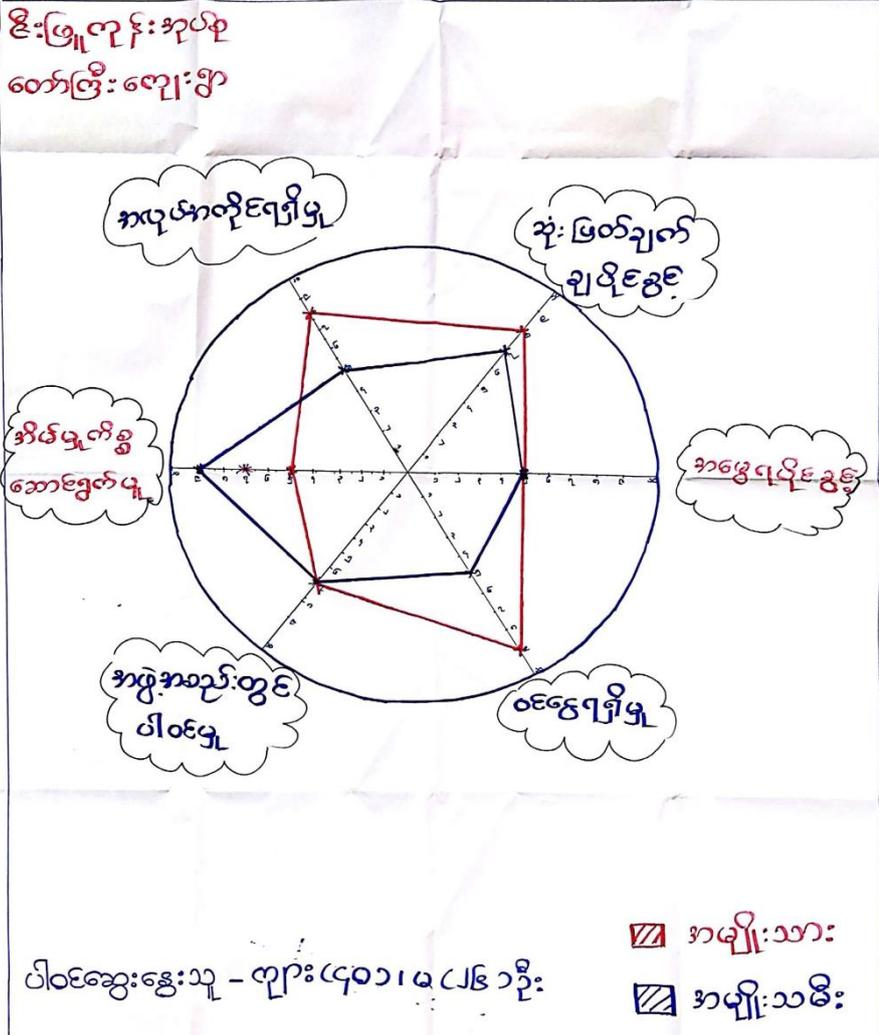 ဇီးဖြူကုန်းအုပ်စု
တော်ကြီးကျေးရွာ
အလုပ်အကိုင်ရရှိမှု
ဆုံးဖြတ်ချက်
ချပိုင်ခွင့်
အိမ်မှုကိစ္စ
ဆောင်ရွက်မှု
အမွေရပိုင်ခွင့်
အဖွဲ့အစည်းတွင်
ပါဝင်မှု
ဝင်ငွေရရှိမှု
အမျိုးသား
ပါဝင်ဆွေးနွေးသူ - ကျား (၄၀)၊ မ (၂၆) ဦး
အမျိုးသမီး